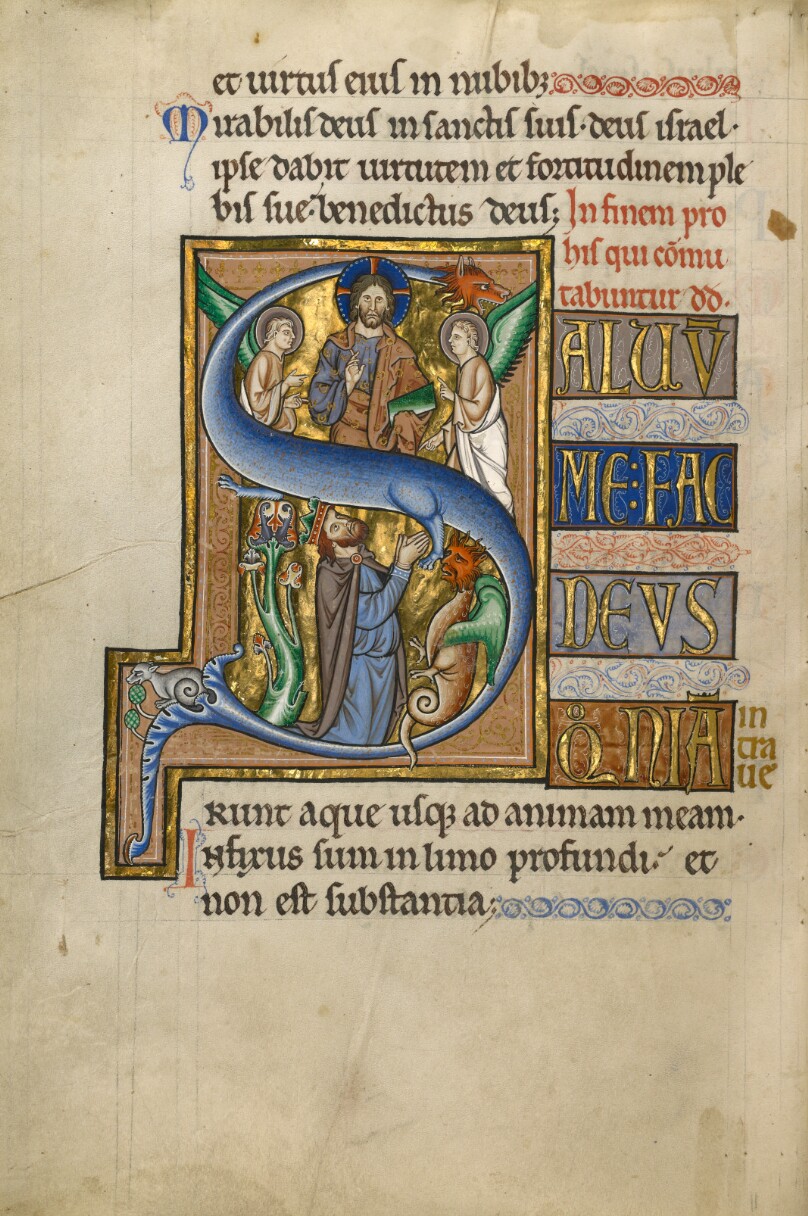 et uirtus eius in nubibꝫ
Mirabilis deus in sanctis suis · deus israel ·
ipse dabit uirtutem et fortitudinem ple
bis sue · benedictus deus; In finem pro
his qui cōmu
tabuntur dd.
SALUV̄
ME : FAC
DEVS
Qͦ NIĀ in
tra
ue
runt aque usqꝫ ad animam meam ·
Infixus sum in limo profundi · et
non est substantia;